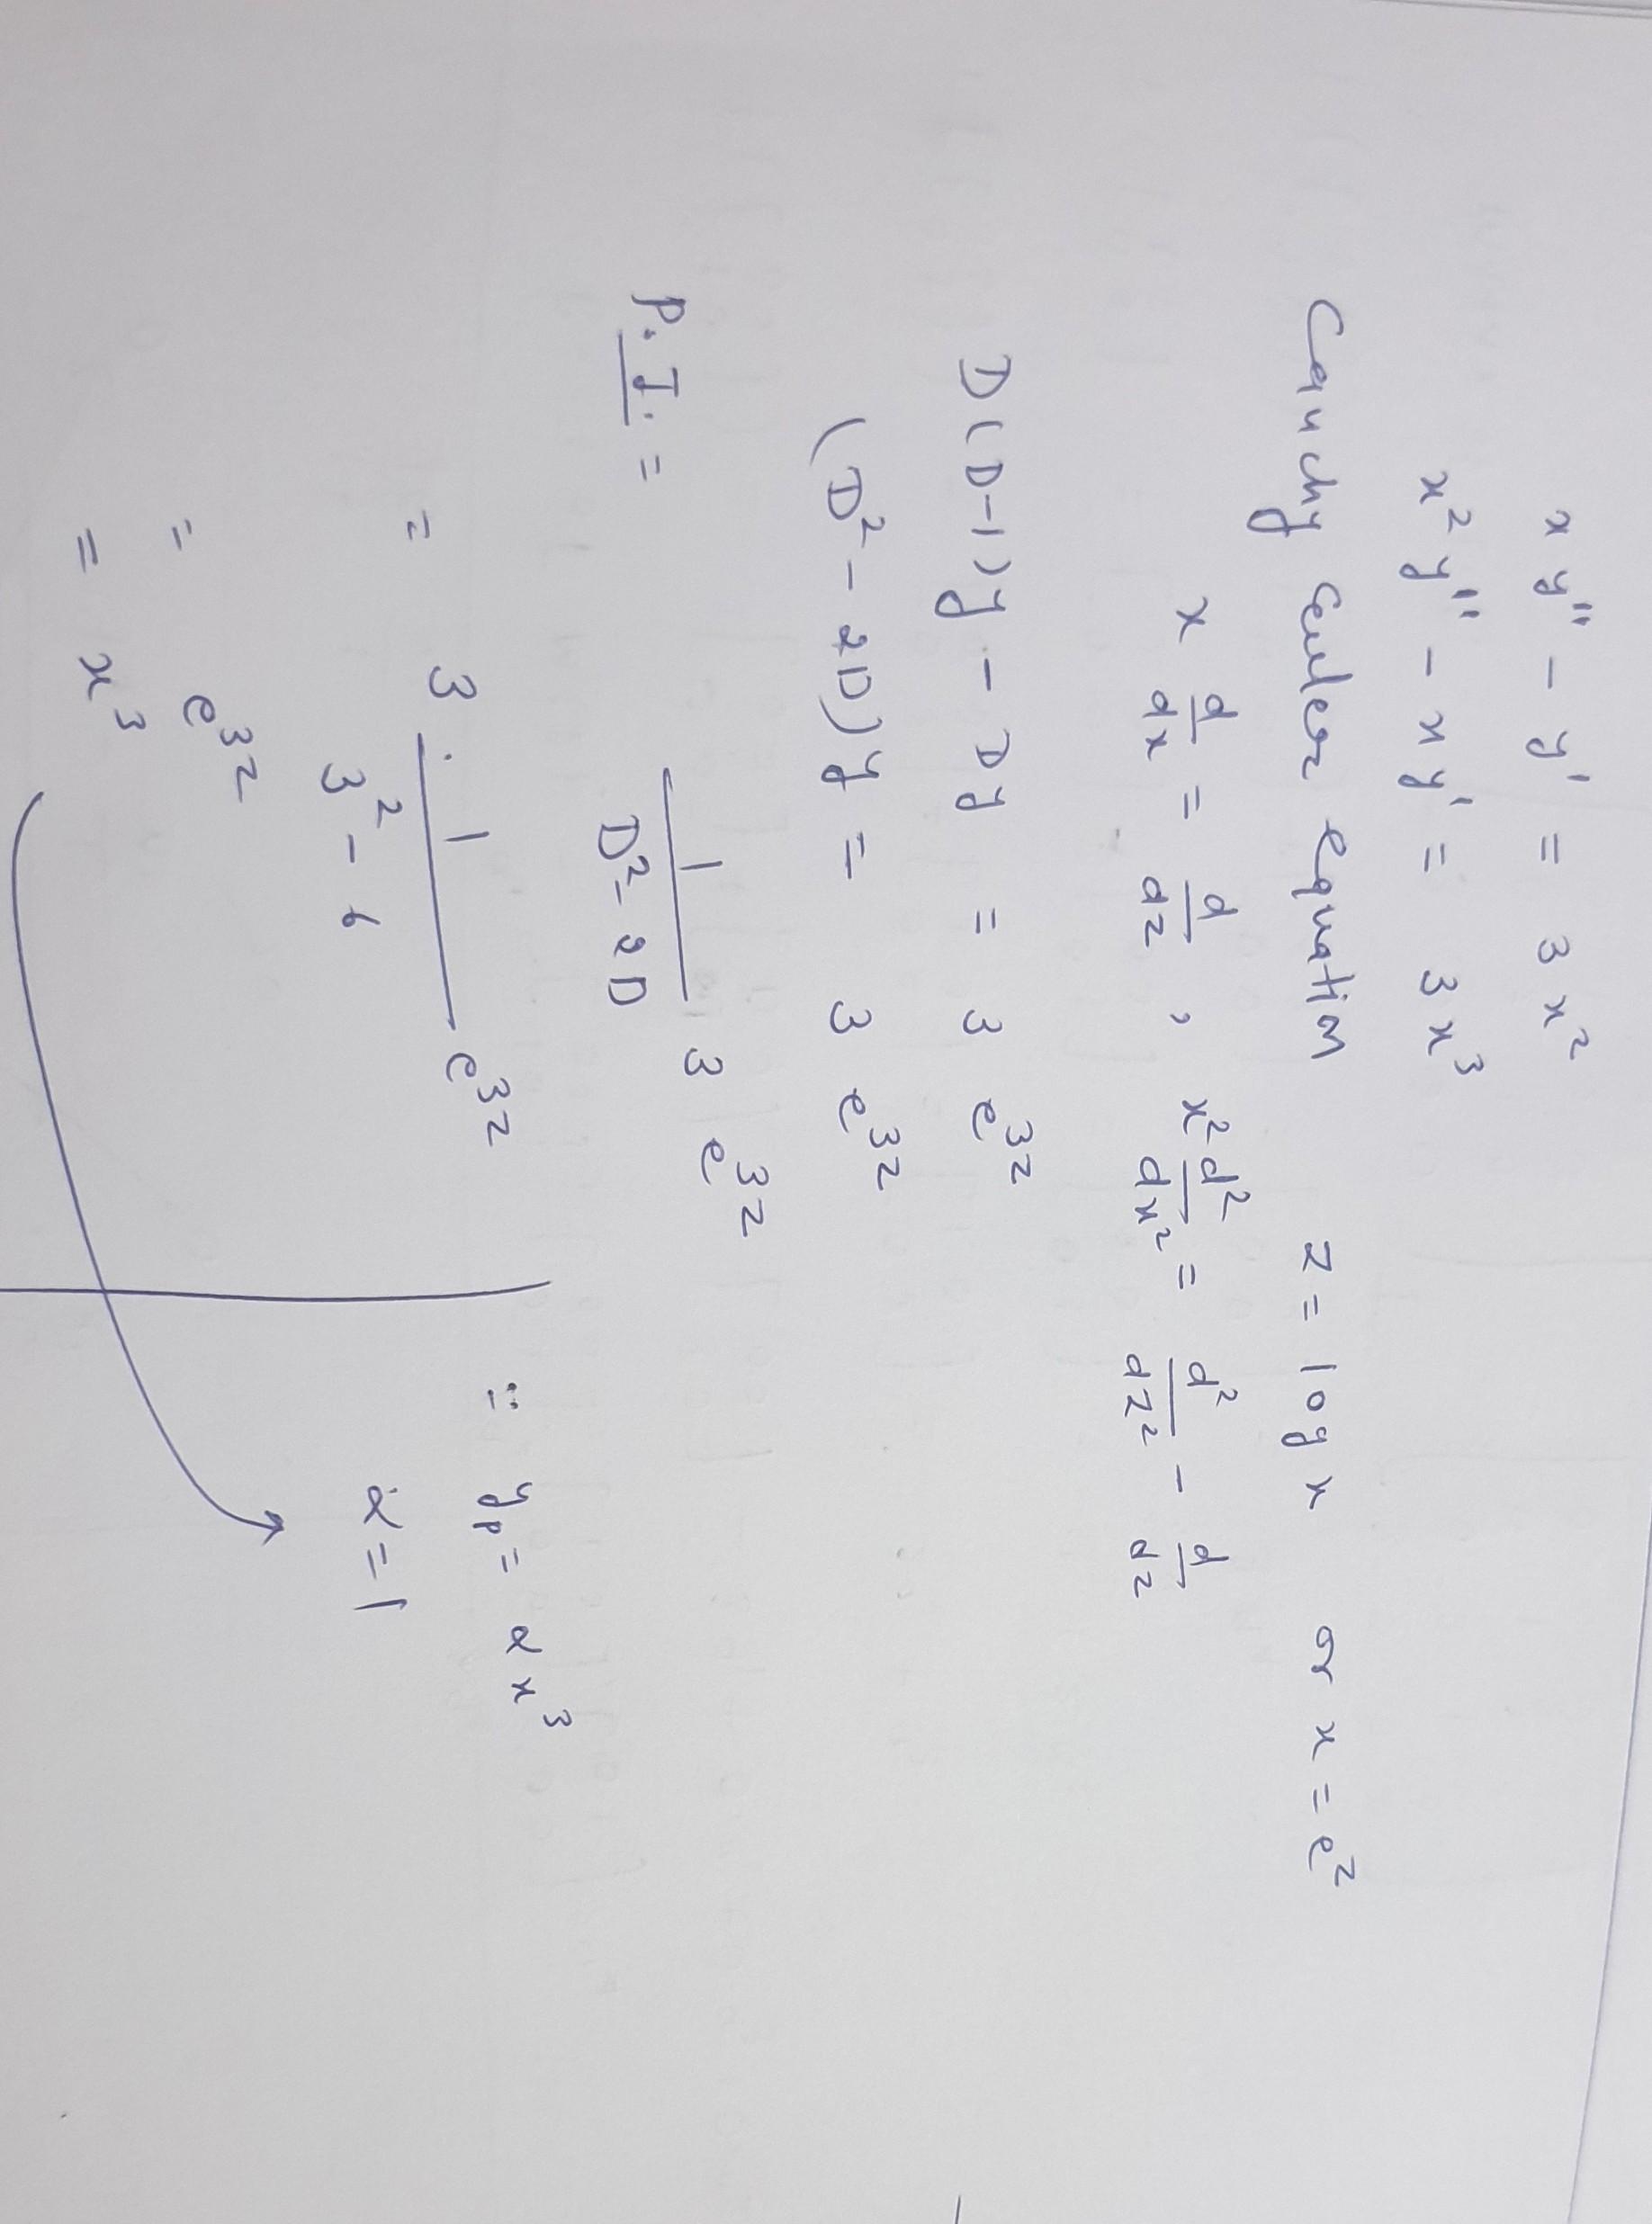 x y'' - y' = 3 x²
x² y'' - x y' = 3 x³
Cauchy Euler equation z = log x or x = e^z
x d/dx = d/dz , x² d²/dx² = d²/dz² - d/dz
D(D-1)y - Dy = 3 e^3z
(D² - 2D)y = 3 e^3z
P.I. = 1/(D² - 2D) 3 e^3z
= 3 . 1/(3² - 6) e^3z
= e^3z
= x³
∵ y_p = α x³
α = 1